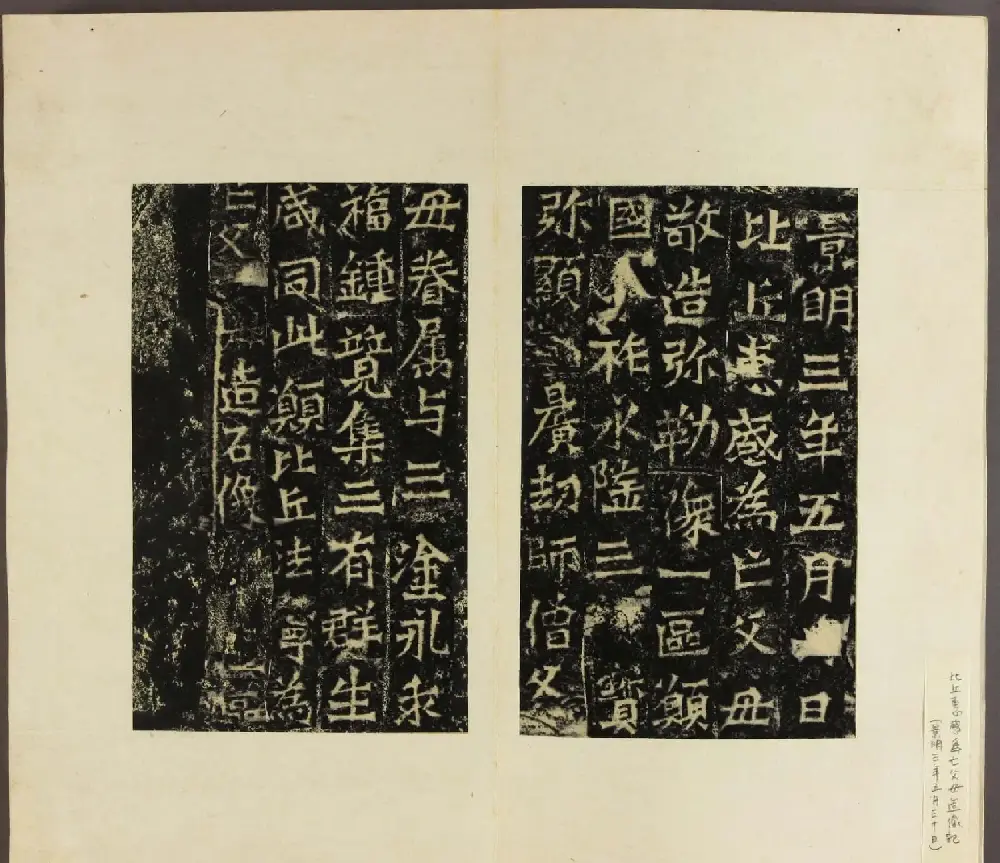 景明三年五月日
比丘惠感為亡父母
敬造弥勒像一區願
國祚永隆三寳
弥顯曠劫師僧父
母眷属与三塗永求
福鍾覽集三有群生
咸同此願比丘法寧為
亡父母造石像一區
比丘惠感為亡父母造像記
(景明三年五月三十日)